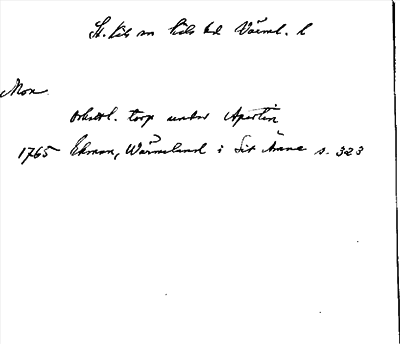 St. Kils sn Kils hd Värml. l
Mon
oskattl. torp under Apertin
1765 Ekman, Wärmeland i Sit Ämne s. 323